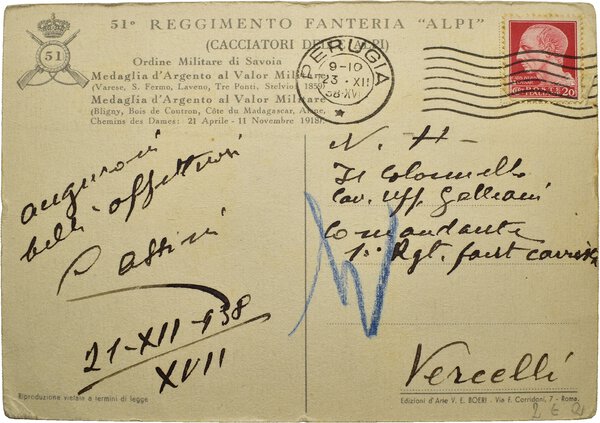 51° REGGIMENTO FANTERIA "ALPI"
(CACCIATORI DELLE ALPI)
Ordine Militare di Savoia
Medaglia d'Argento al Valor Militare
(Varese, S. Fermo, Laveno, Tre Ponti, Stelvio 1859)
Medaglia d'Argento al Valor Militare
(Bligny, Bois de Coutron, Côte du Madagascar, Aisne,
Chemins des Dames: 21 Aprile - 11 Novembre 1918)
51
PERUGIA
9-10
23·XII
38·XVII
POSTE
ITALIANE
20
auguroni
belli affettuosi
21-XII-938
XVII
N. H.
Il Colonnello
Cav. Uff. Galleani
Comandante
1° Rgt. fant carrista
Vercelli
Riproduzione vietata a termini di legge
Edizioni d'Arte V. E. BOERI - Via F. Corridoni, 7 - Roma.